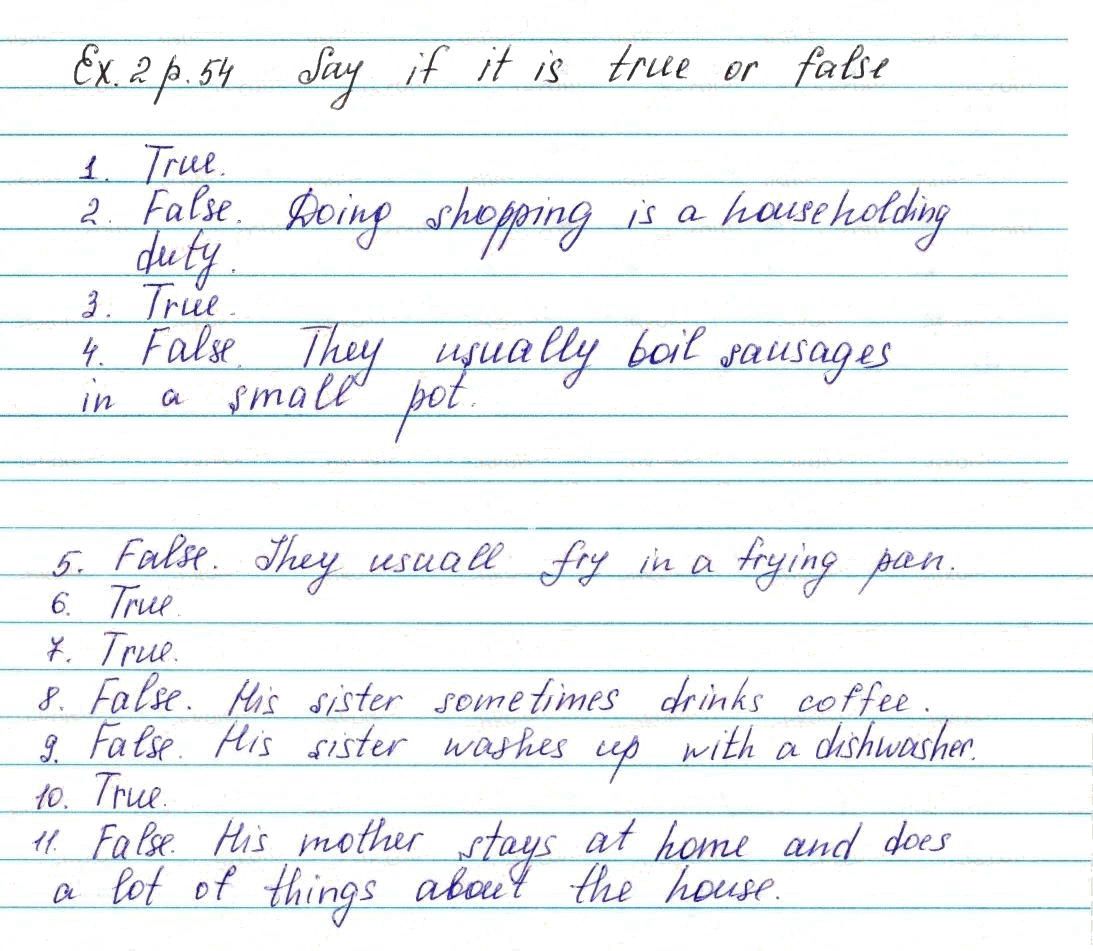 Ex. 2 p. 54 Say if it is true or false
1. True.
2. False. Doing shopping is a householding
duty.
3. True.
4. False. They usually boil sausages
in a small pot.
5. False. They usuall fry in a frying pan.
6. True.
7. True.
8. False. His sister sometimes drinks coffee.
9. False. His sister washes up with a dishwasher.
10. True.
11. False. His mother stays at home and does
a lot of things about the house.